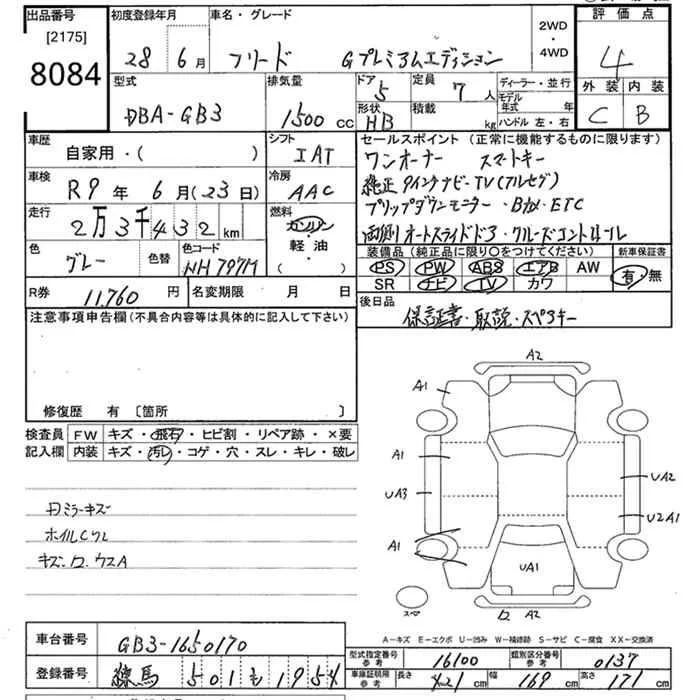 出品番号 初度登録年月 車名・グレード 2WD・4WD 評価点
[2175]
8084 28年 6月 フリード Gプレミアムエディション 4
外装 内装
C B
型式 排気量 ドア 定員 ディーラー・並行
DBA-GB3 1500 cc 5 7人 モデル年式 年
形状 積載 ハンドル 左・右
HB kg
車歴 シフト セールスポイント (正常に機能するものに限ります)
自家用・( ) IAT ワンオーナー スマートキー
車検 冷房 純正9インチナビ・TV(フルセグ)
R9年 6月(23日) AAC フリップダウンモニター・Bカメ・ETC
走行 燃料 両側オートスライドドア・クルーズコントロール
2万3千432km ガソリン
軽油
( )
色 色替 色コード 装備品 (純正品に限り○をつけてください) 新車保証書
グレー NH797M PS PW ABS エアB AW 有・無
SR ナビ TV カワ
R券 11,760円 名変期限 月 日 後日品
保証書・取説・スペアキー
注意事項申告欄(不具合内容等は具体的に記入して下さい)
修復歴 有 〔箇所 〕
検査員 FW キズ・飛石・ヒビ割・リペア跡・×要
記入欄 内装 キズ・汚レ・コゲ・穴・スレ・キレ・破レ
ミラーキズ
ホイルCカレ
キズ・ウスA
A2
A1
A1
UA3
UA2
U2A1
A1
UA1
スペア
A2
A-キズ E-エクボ U-凹み W-補修跡 S-サビ C-腐食 XX-交換済
車台番号 GB3-1650170
型式指定番号 参考 16100 類別区分番号 参考 0137
登録番号 練馬 501 も 1954
車庫証明用 参考 長さ 421cm 幅 169cm 高さ 171cm